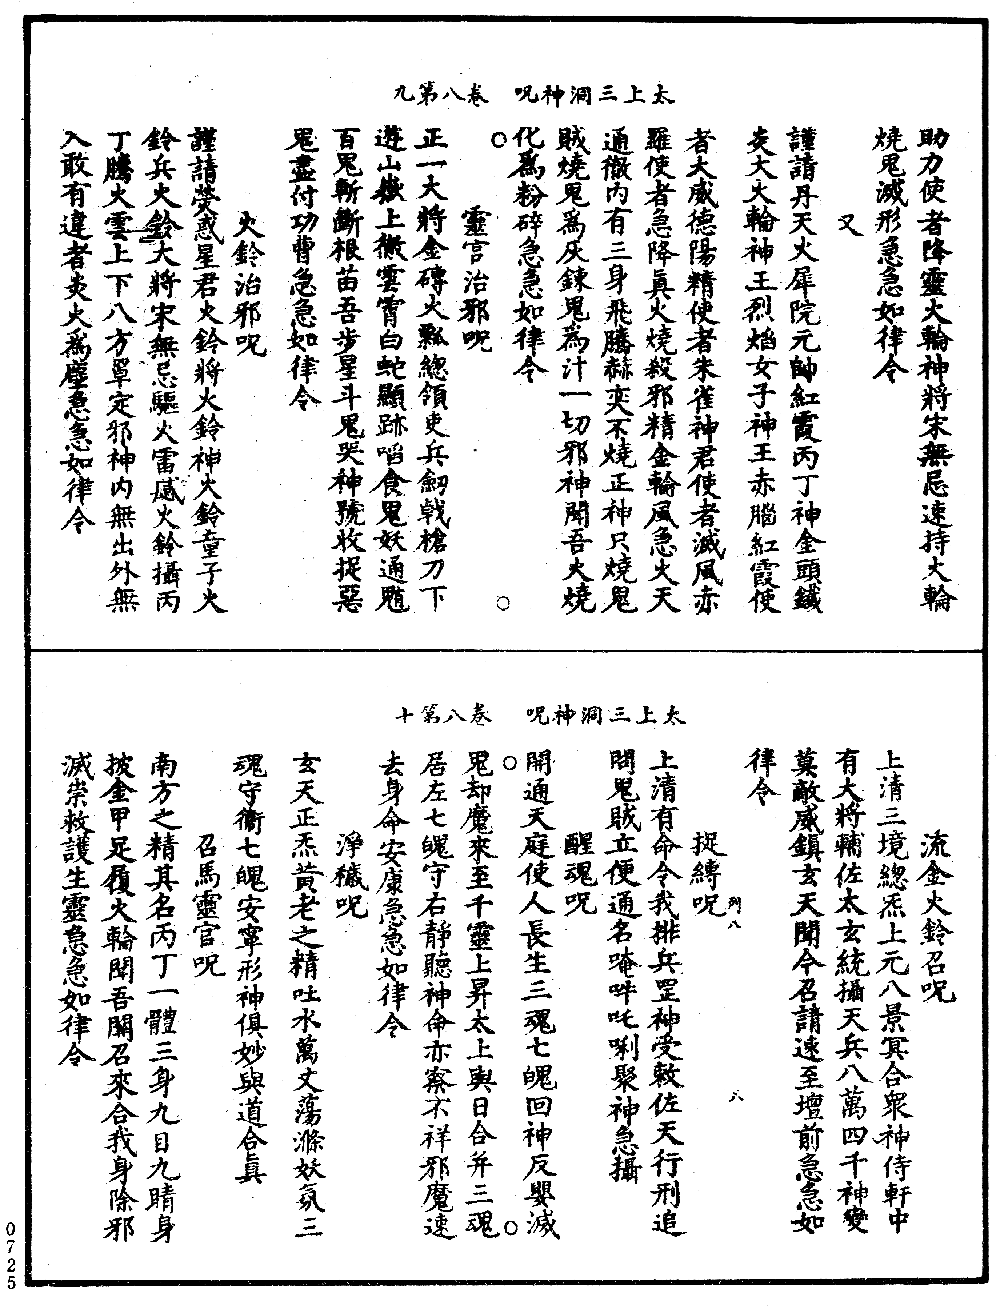 太上三洞神呪　卷八第九
助力使者降靈大輪神將宋無忌速持火輪
燒鬼滅形急急如律令
又
謹請丹天火犀院元帥紅霞丙丁神金頭鐵
炎大火輪神王烈焰女子神王赤腦紅霞使
者大威德陽精使者朱雀神君使者滅風赤
羅使者急降眞火燒殺邪精金輪風急火天
通徹內有三身飛騰赫奕不燒正神只燒鬼
賊燒鬼爲灰鍊鬼爲汁一切邪神聞吾火燒
化爲粉碎急急如律令
靈官治邪呪
正一大將金磚火瓢總領吏兵劒戟槍刀下
遊山嶽上徹雲霄白蛇顯跡啗食鬼妖通魈
百鬼斬斷根苗吾步星斗鬼哭神號收捉惡
鬼盡付功曹急急如律令
火鈴治邪呪
謹請熒惑星君火鈴將火鈴神火鈴童子火
鈴兵火鈴大將宋無忌驅火雷感火鈴攝丙
丁騰火雲上下八方罩定邪神內無出外無
入敢有違者炎火爲塵急急如律令
太上三洞神呪　卷八第十
流金火鈴召呪
上清三境總炁上元八景冥合衆神侍軒中
有大將輔佐太玄統攝天兵八萬四千神變
莫敵威鎮玄天聞今召請速至壇前急急如
律令
捉縛呪
列八　六
上清有命令我排兵罡神受敕佐天行刑追
問鬼賊立便通名唵吽吒唎聚神急攝
醒魂呪
開通天庭使人長生三魂七魄回神反嬰滅
鬼却魔來至千靈上昇太上與日合并三魂
居左七魄守右靜聽神命亦察不祥邪魔速
去身命安康急急如律令
淨穢呪
玄天正炁黃老之精吐水萬丈蕩滌妖氛三
魂守衞七魄安寧形神俱妙與道合眞
召馬靈官呪
南方之精其名丙丁一體三身九目九睛身
披金甲足履火輪聞吾關召來合我身除邪
滅祟救護生靈急急如律令
0725